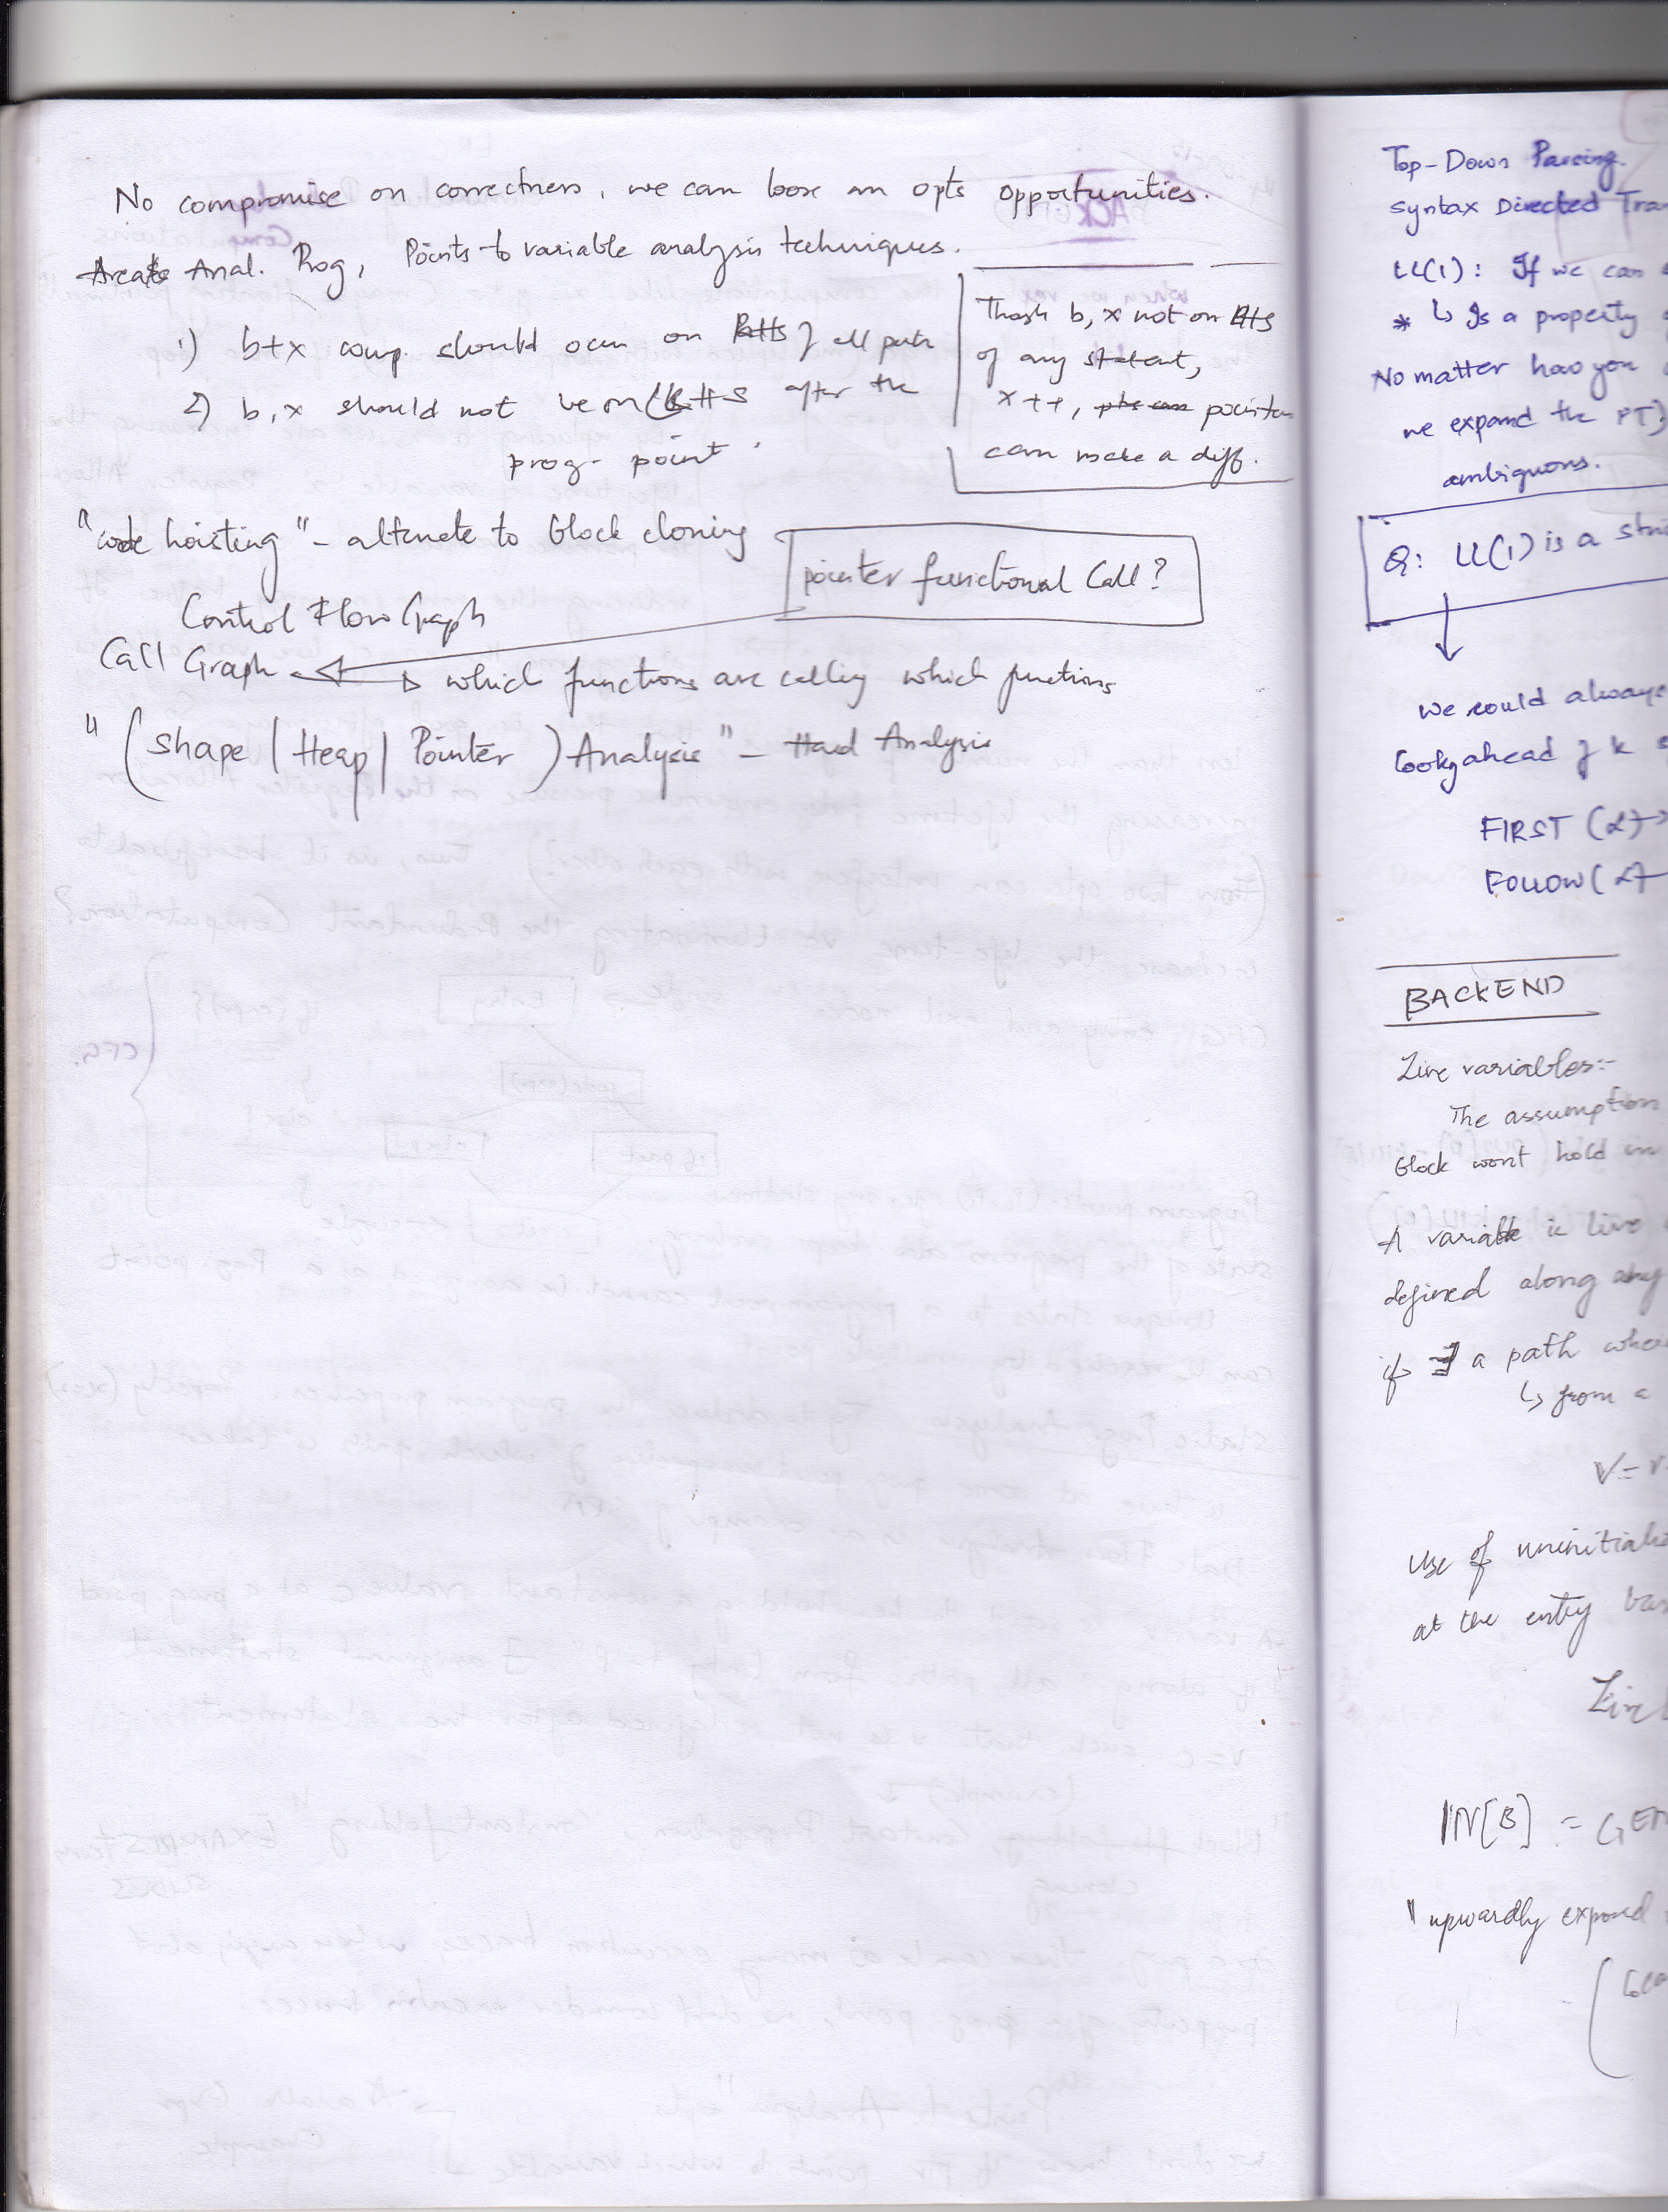 No compromise on correctness, we can loose on opts opportunities.
Anal. Prog, Points-to variable analysis techniques.
1) b+x comp. should occur on RHS of all path
2) b,x should not be on LHS after the
prog. point.
Though b, x not on LHS
of any statement,
x++, pointers
can make a diff.
"code hoisting" - alternate to block cloning
pointer functional Call?
Control Flow Graph
Call Graph which functions are calling which functions
"(Shape | Heap | Pointer) Analysis" - Hard Analysis
Top-Down Parsing.
Syntax Directed Tran
LL(1): If we can
* ↳ Is a property
No matter how you
we expand the PT)
ambiguous.
Q: LL(1) is a stri
we could always
Looky ahead of k
FIRST (α)→
FOLLOW (α)
BACKEND
Live variables:-
The assumption
block wont hold in
A variable is live
defined along any
if ∃ a path wher
↳ from a
V = v
Use of uninitiali
at the entry bas
Live
IN[B] = GEN
"upwardly exposed
(loca